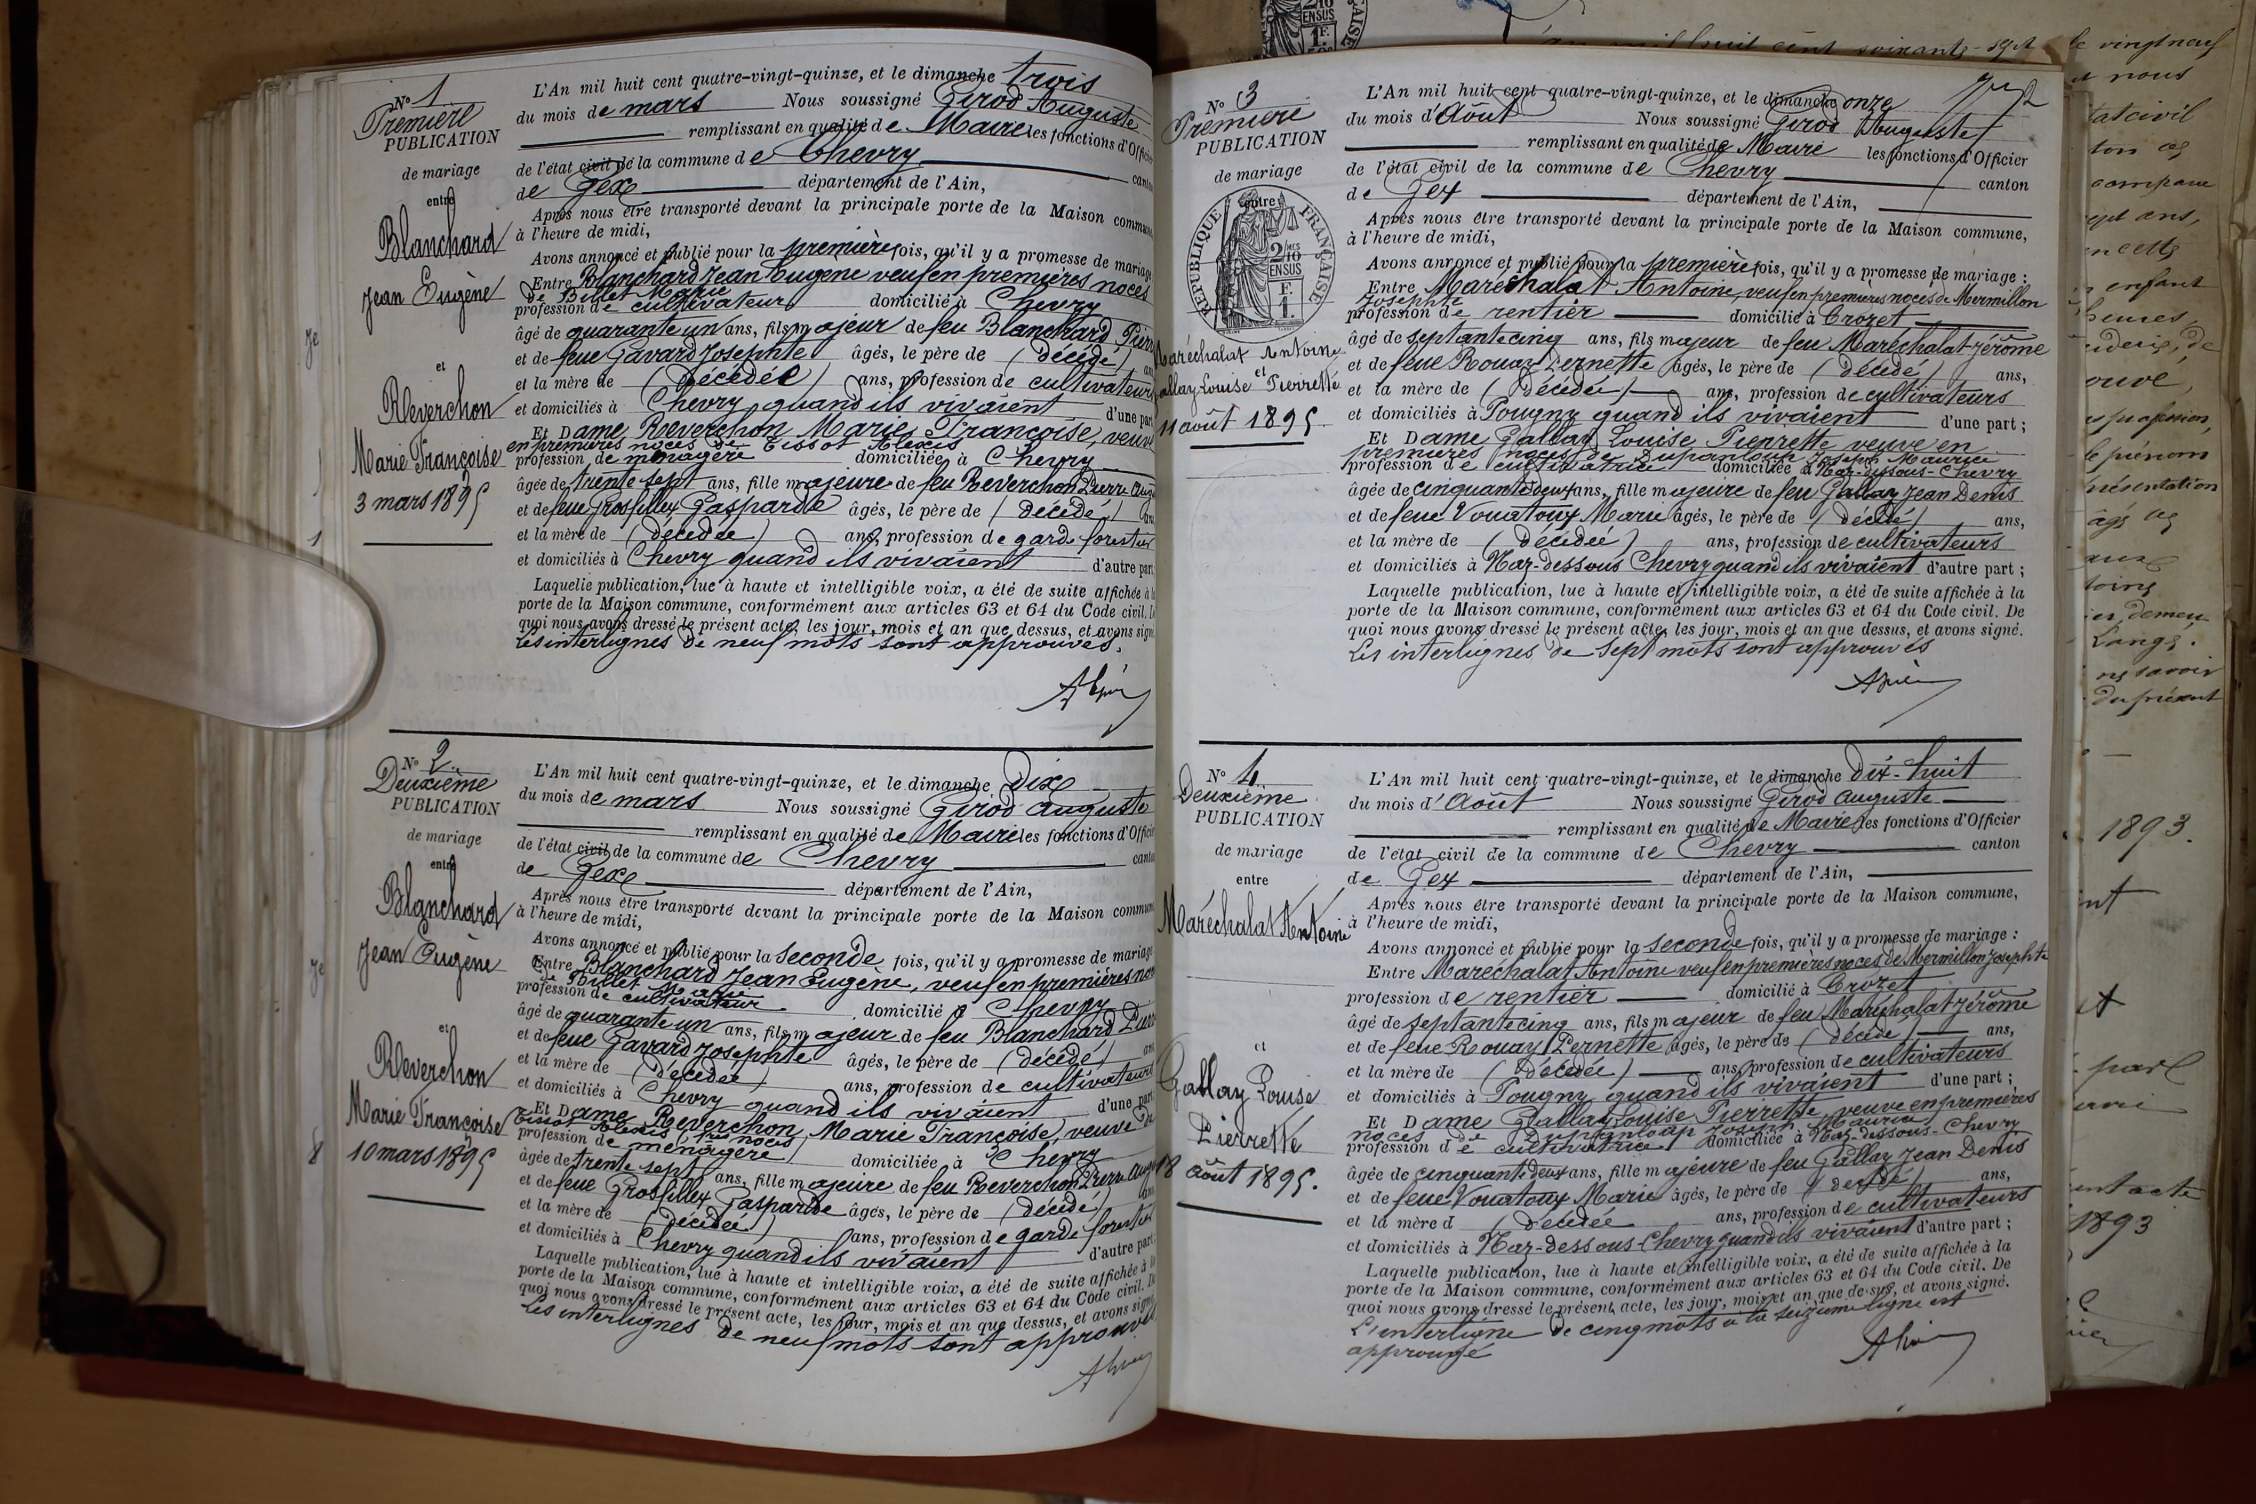 N° 1
Première
PUBLICATION
de mariage
entre
Blanchard
Jean Eugène
et
Reverchon
Marie Françoise
3 mars 1895
L'An mil huit cent quatre-vingt-quinze, et le dimanche trois
du mois de mars Nous soussigné Girod Auguste
remplissant en qualité de Maire les fonctions d'Officier
de l'état civil de la commune de Chevry canton
de Gex département de l'Ain,
Après nous être transporté devant la principale porte de la Maison commune
à l'heure de midi,
Avons annoncé et publié pour la première fois, qu'il y a promesse de mariage
Entre Blanchard Jean Eugène veuf en premières noces
de Billet Marie
profession de cultivateur domicilié à Chevry
âgé de quarante un ans, fils majeur de feu Blanchard Pierre
et de feue Gavard Josephte âgés, le père de (décédé) ans
et la mère de (décédée) ans, profession de cultivateurs
et domiciliés à Chevry quand ils vivaient d'une part
Et Dame Reverchon Marie Françoise, veuve
en premières noces de Tissot Alexis
profession de ménagère domiciliée à Chevry
âgée de trente sept ans, fille majeure de feu Reverchon Pierre Aug
et de feue Grosfilley Gasparde âgés, le père de (décédé) ans
et la mère de (décédée) ans, profession de garde forestier
et domiciliés à Chevry quand ils vivaient d'autre part
Laquelle publication, lue à haute et intelligible voix, a été de suite affichée à la
porte de la Maison commune, conformément aux articles 63 et 64 du Code civil. De
quoi nous avons dressé le présent acte, les jour, mois et an que dessus, et avons signé
Les interlignes de neuf mots sont approuvés.
N° 2
Deuxième
PUBLICATION
de mariage
entre
Blanchard
Jean Eugène
et
Reverchon
Marie Françoise
10 mars 1895
L'An mil huit cent quatre-vingt-quinze, et le dimanche dix
du mois de mars Nous soussigné Girod Auguste
remplissant en qualité de Maire les fonctions d'Officier
de l'état civil de la commune de Chevry canton
de Gex département de l'Ain,
Après nous être transporté devant la principale porte de la Maison commune
à l'heure de midi,
Avons annoncé et publié pour la seconde fois, qu'il y a promesse de mariage
Entre Blanchard Jean Eugène, veuf en premières noces
de Billet Marie
profession de cultivateur domicilié à Chevry
âgé de quarante un ans, fils majeur de feu Blanchard Pierre
et de feue Gavard Josephte âgés, le père de (décédé) ans
et la mère de (décédée) ans, profession de cultivateurs
et domiciliés à Chevry quand ils vivaient d'une part
Et Dame Reverchon Marie Françoise, veuve de
Tissot Alexis (1res noces)
profession de ménagère domiciliée à Chevry
âgée de trente sept ans, fille majeure de feu Reverchon Pierre Aug
et de feue Grosfilley Gasparde âgés, le père de (décédé)
et la mère de (décédée) ans, profession de garde forestier
et domiciliés à Chevry quand ils vivaient d'autre part
Laquelle publication, lue à haute et intelligible voix, a été de suite affichée à la
porte de la Maison commune, conformément aux articles 63 et 64 du Code civil. De
quoi nous avons dressé le présent acte, les jour, mois et an que dessus, et avons signé
Les interlignes de neuf mots sont approuvés
N° 3
Première
PUBLICATION
de mariage
entre
RÉPUBLIQUE FRANÇAISE
2/10 EN SUS
1 F.
Maréchalat Antoine
et
Gallay Louise Pierrette
11 août 1895
L'An mil huit cent quatre-vingt-quinze, et le dimanche onze
du mois d'Août Nous soussigné Girod Auguste
remplissant en qualité de Maire les fonctions d'Officier
de l'état civil de la commune de Chevry canton
de Gex département de l'Ain,
Après nous être transporté devant la principale porte de la Maison commune,
à l'heure de midi,
Avons annoncé et publié pour la première fois, qu'il y a promesse de mariage :
Entre Maréchalat Antoine, veuf en premières noces de Mermillon
Josephte
profession de rentier domicilié à Crozet
âgé de septante cinq ans, fils majeur de feu Maréchalat Jérôme
et de feue Rouay Pernette âgés, le père de (décédé) ans,
et la mère de (décédée) ans, profession de cultivateurs
et domiciliés à Pougny quand ils vivaient d'une part ;
Et Dame Gallay Louise Pierrette veuve en
premières noces de Dupanloup Joseph Maurice
profession de cultivatrice domiciliée à Naz-dessous-Chevry
âgée de cinquante deux ans, fille majeure de feu Gallay Jean Denis
et de feue Vouatoux Marie âgés, le père de (décédé) ans,
et la mère de (décédée) ans, profession de cultivateurs
et domiciliés à Naz-dessous Chevry quand ils vivaient d'autre part ;
Laquelle publication, lue à haute et intelligible voix, a été de suite affichée à la
porte de la Maison commune, conformément aux articles 63 et 64 du Code civil. De
quoi nous avons dressé le présent acte, les jour, mois et an que dessus, et avons signé.
Les interlignes de sept mots sont approuvés
N° 4
Deuxième
PUBLICATION
de mariage
entre
Maréchalat Antoine
et
Gallay Louise
Pierrette
18 août 1895.
L'An mil huit cent quatre-vingt-quinze, et le dimanche dix-huit
du mois d'Août Nous soussigné Girod Auguste
remplissant en qualité de Maire les fonctions d'Officier
de l'état civil de la commune de Chevry canton
de Gex département de l'Ain,
Après nous être transporté devant la principale porte de la Maison commune,
à l'heure de midi,
Avons annoncé et publié pour la seconde fois, qu'il y a promesse de mariage :
Entre Maréchalat Antoine veuf en premières noces de Mermillon Josephte
profession de rentier domicilié à Crozet
âgé de septante cinq ans, fils majeur de feu Maréchalat Jérôme
et de feue Rouay Pernette âgés, le père de (décédé) ans,
et la mère de (décédée) ans, profession de cultivateurs
et domiciliés à Pougny quand ils vivaient d'une part ;
Et Dame Gallay Louise Pierrette, veuve en premières
noces de Dupanloup Joseph Maurice
profession de cultivatrice domiciliée à Naz-dessous-Chevry
âgée de cinquante deux ans, fille majeure de feu Gallay Jean Denis
et de feue Vouatoux Marie âgés, le père de (décédé) ans,
et la mère d (décédée ans, profession de cultivateurs
et domiciliés à Naz-dessous-Chevry quand ils vivaient d'autre part ;
Laquelle publication, lue à haute et intelligible voix, a été de suite affichée à la
porte de la Maison commune, conformément aux articles 63 et 64 du Code civil. De
quoi nous avons dressé le présent acte, les jour, mois et an que dessus, et avons signé.
L'interligne de cinq mots à la seizième ligne est
approuvé
le vingt neuf
nous
1893.
1893